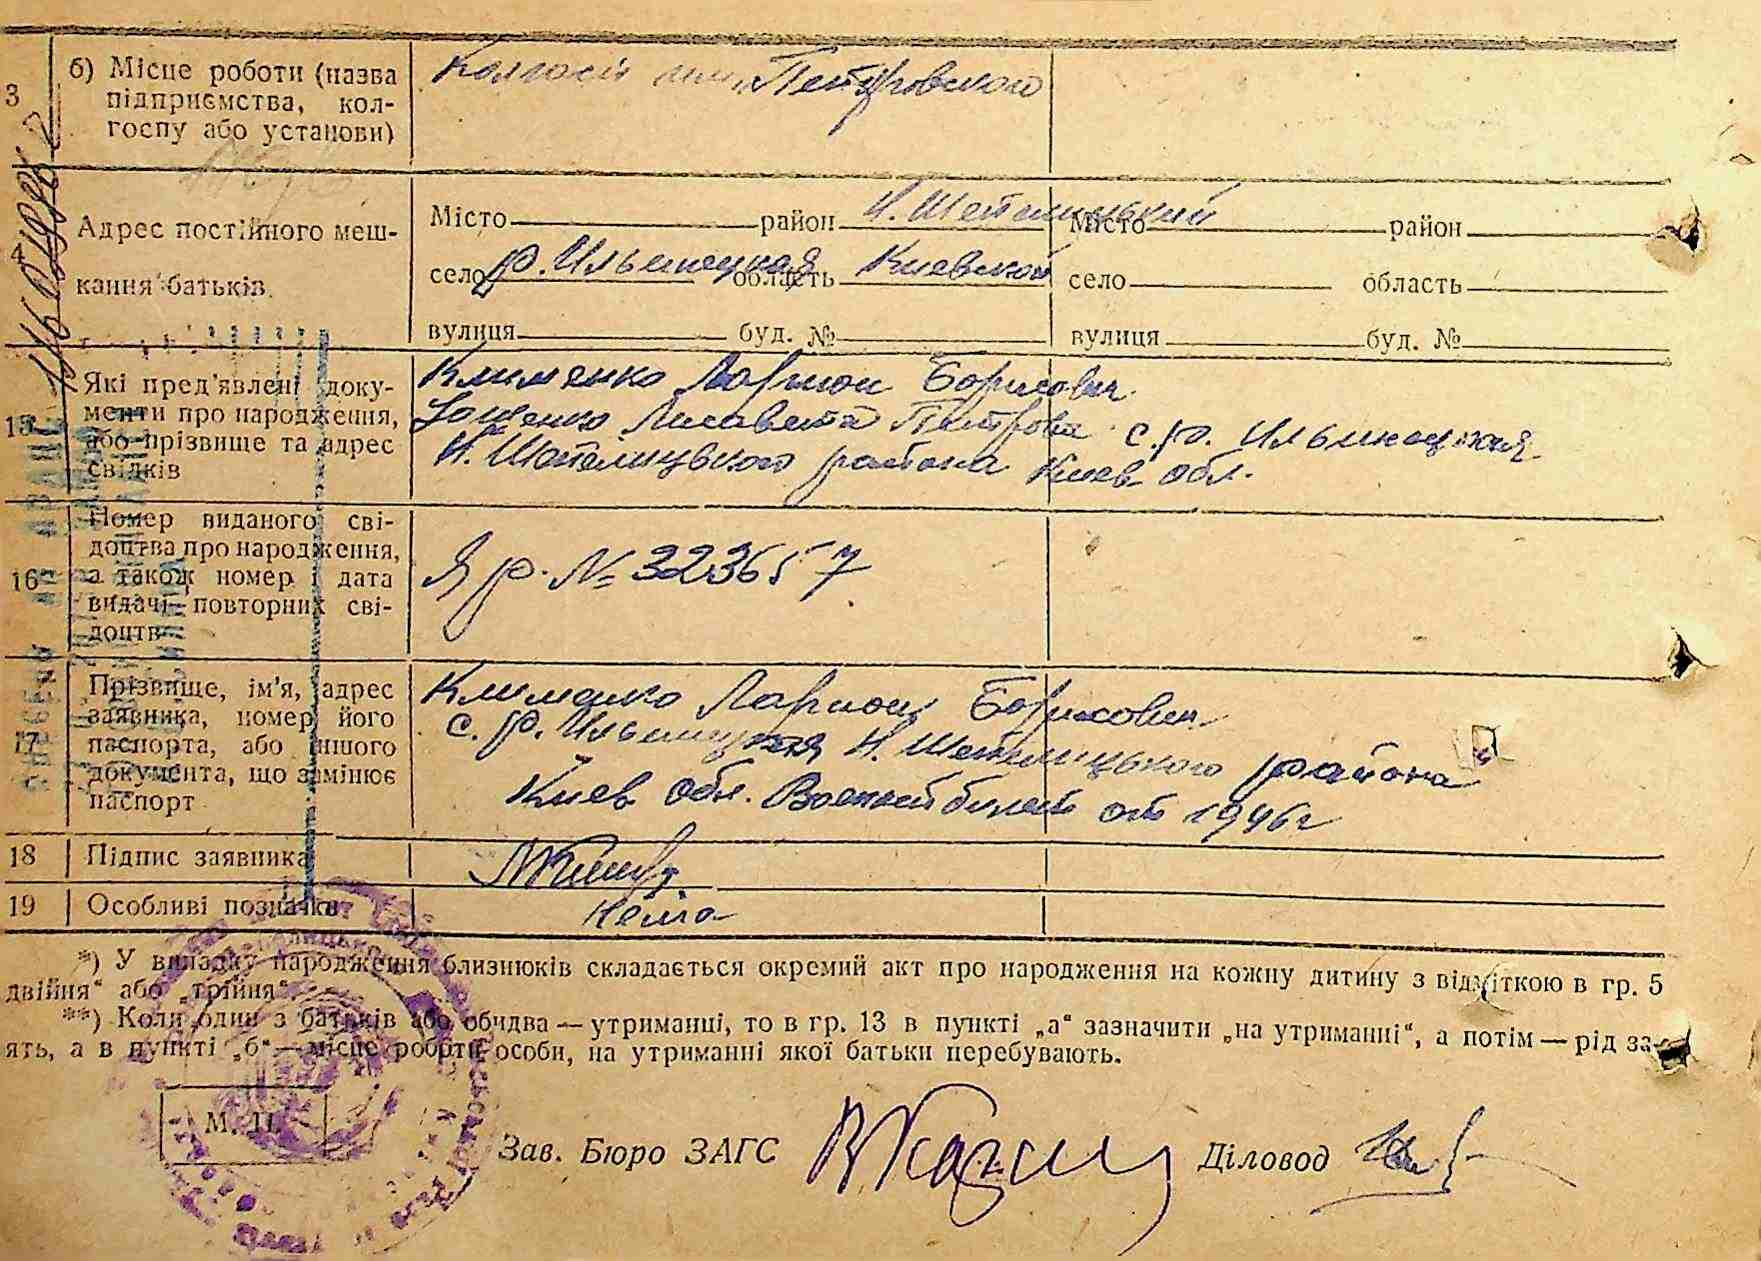 3
б) Місце роботи (назва
підприємства, кол-
госпу або установи)
Колгосп им. Петровского
4
Адрес постійного меш-
кання батьків
Місто район Н. Шепелицький
село р. Ильинецкая область Киевской
вулиця буд. №
Місто район
село область
вулиця буд. №
15
Які пред'явлені доку-
менти про народження,
або прізвище та адрес
свідків
Клименко Ларион Борисович
Лисавета Петровна с. р. Ильинецкая
Н. Шепелицького района Киев обл.
16
Номер виданого сві-
доцтва про народження,
а також номер і дата
видачі повторних сві-
доцтв
Я р. № 323657
17
Прізвище, ім'я, адрес
заявника, номер його
паспорта, або іншого
документа, що замінює
паспорт
Клименко Ларион Борисович
с. р. Ильинецкая Н. Шепелицького района
Киев обл. Военный билет от 1946 г
18 Підпис заявника
19 Особливі позначки
Нема
*) У випадку народження близнюків складається окремий акт про народження на кожну дитину з відміткою в гр. 5
двійня“ або „трійня“.
**) Коли один з батьків або обидва — утриманці, то в гр. 13 в пункті „а“ зазначити „на утриманні“, а потім — рід за-
ять, а в пункті „б“ — місце роботи особи, на утриманні якої батьки перебувають.
М. П.
Зав. Бюро ЗАГС
Діловод